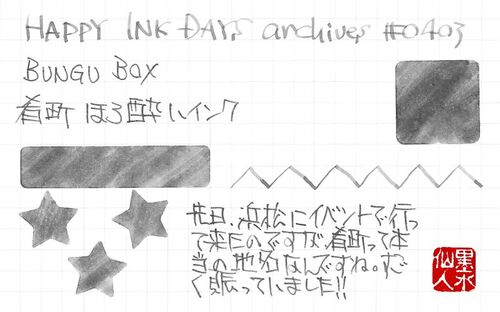 HAPPY INK DAYS archives #0403
BUNGU BOX
肴町 ほろ酔いインク
先日、浜松にイベントで行っ
て来たのですが肴町って本
当の地名なんですね。
っていました!!
墨水
仙人